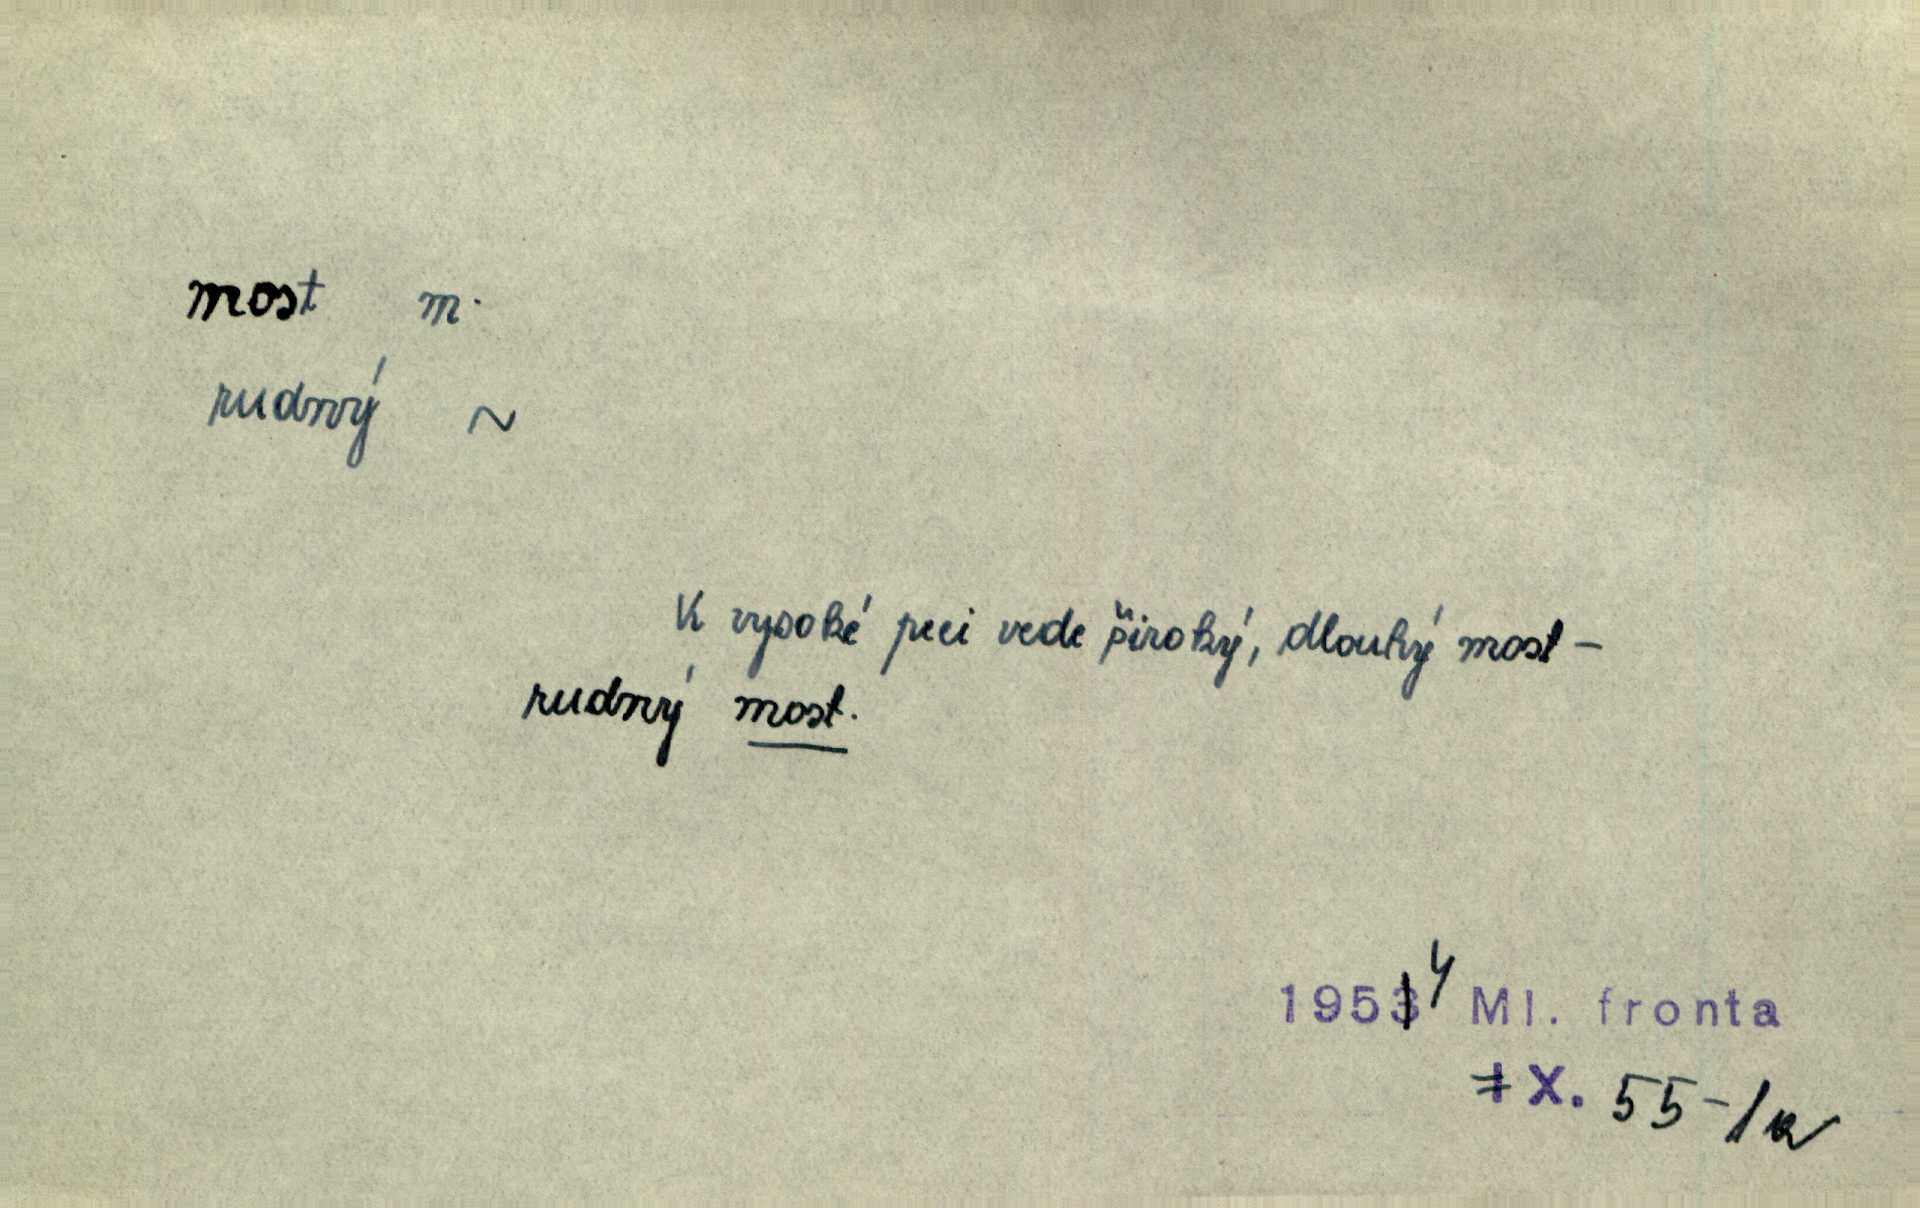 most m.
rudný ~
K vysoké peci vede široký, dlouhý most –
rudný most.
1954 Ml. fronta
X. 55-1